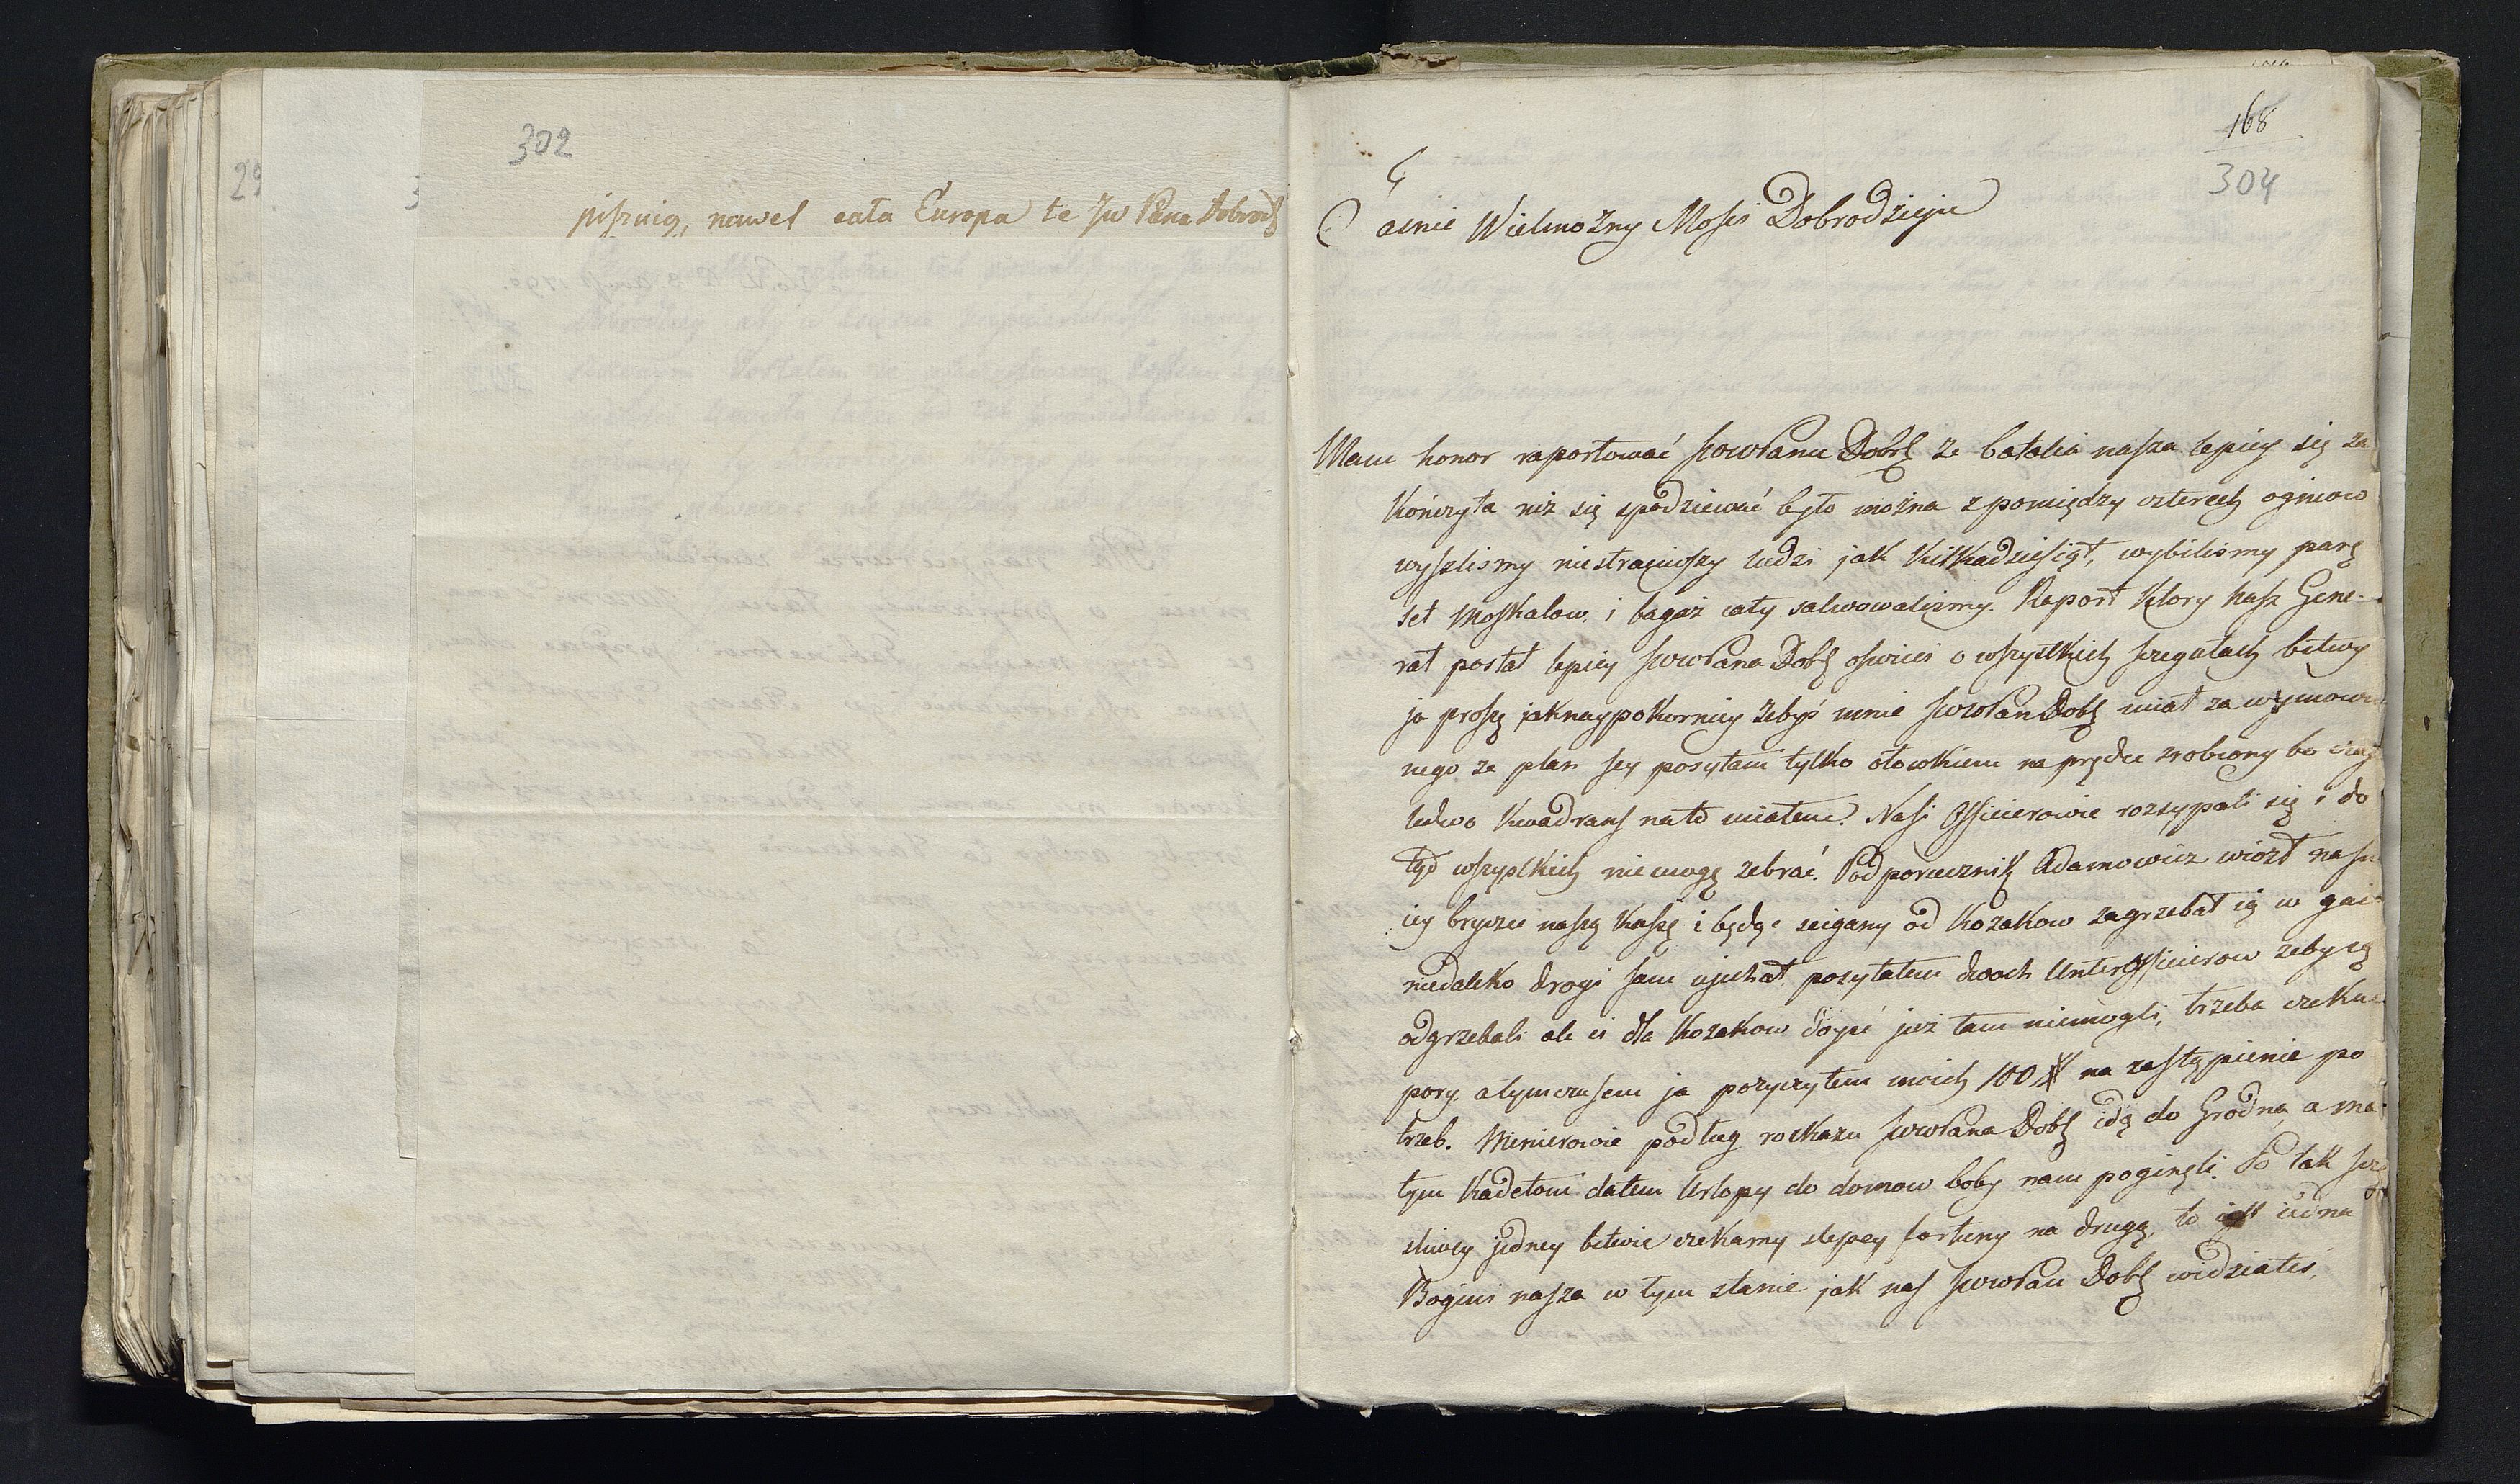 302
piszuią, nawet cała Europa te Jw Pana Dobrodz
168
304
Jaśnie Wielmożny Mości Dobrodzieju
Mam honor raportować Jww Panu Dobr że batalia nasza lepiey się za
kończyła niż się spodziewać było można z pomiędzy czterech ogniow
wyszlismy niestraciwszy ludzi jak kilkadziesiąt, wybilismy parę
set Moskalow, i bagaż cały salwowalismy. Raport ktory nasz Gene-
rał posłał lepiey Jww Pana Dob oswieci o wszystkich szczegułach bitwy
ja proszę jaknaypokorniey żebyś mnie Jww Pan Dob miał za wymowio
nego że plan jey posyłam tylko ołowkiem naprędce zrobiony bo
ledwo kwadrans nato miałem. Nasi Officierowie rozsypali się i do
tąd wszystkich niemogę zebrać. Podporucznik Adamowicz wiozł na
iey bryczce naszę kassę i będąc scigany od Kozakow zagrzebał ią w gai
niedaleko drogi sam ujechał posyłałem dwoch Unterofficierow żeby ią
odgrzebali ale ci dla Kozakow doyść już tam niemogli, trzeba czekać
pory, atymczasem ja pozyczyłem moich 100 # na zastąpienie po
trzeb. Minierowie podług rozkazu Jww Pana Dob idą do Grodna, a ma
łym Kadetom dałem Urlopy do domow boby nam poginęli. Po tak szczę
sliwey jedney bitwie czekamy slepey fortuny na drugą, to iest iedna
Bogini nasza w tym stanie jak nas Jww Pan Dob widziałes,